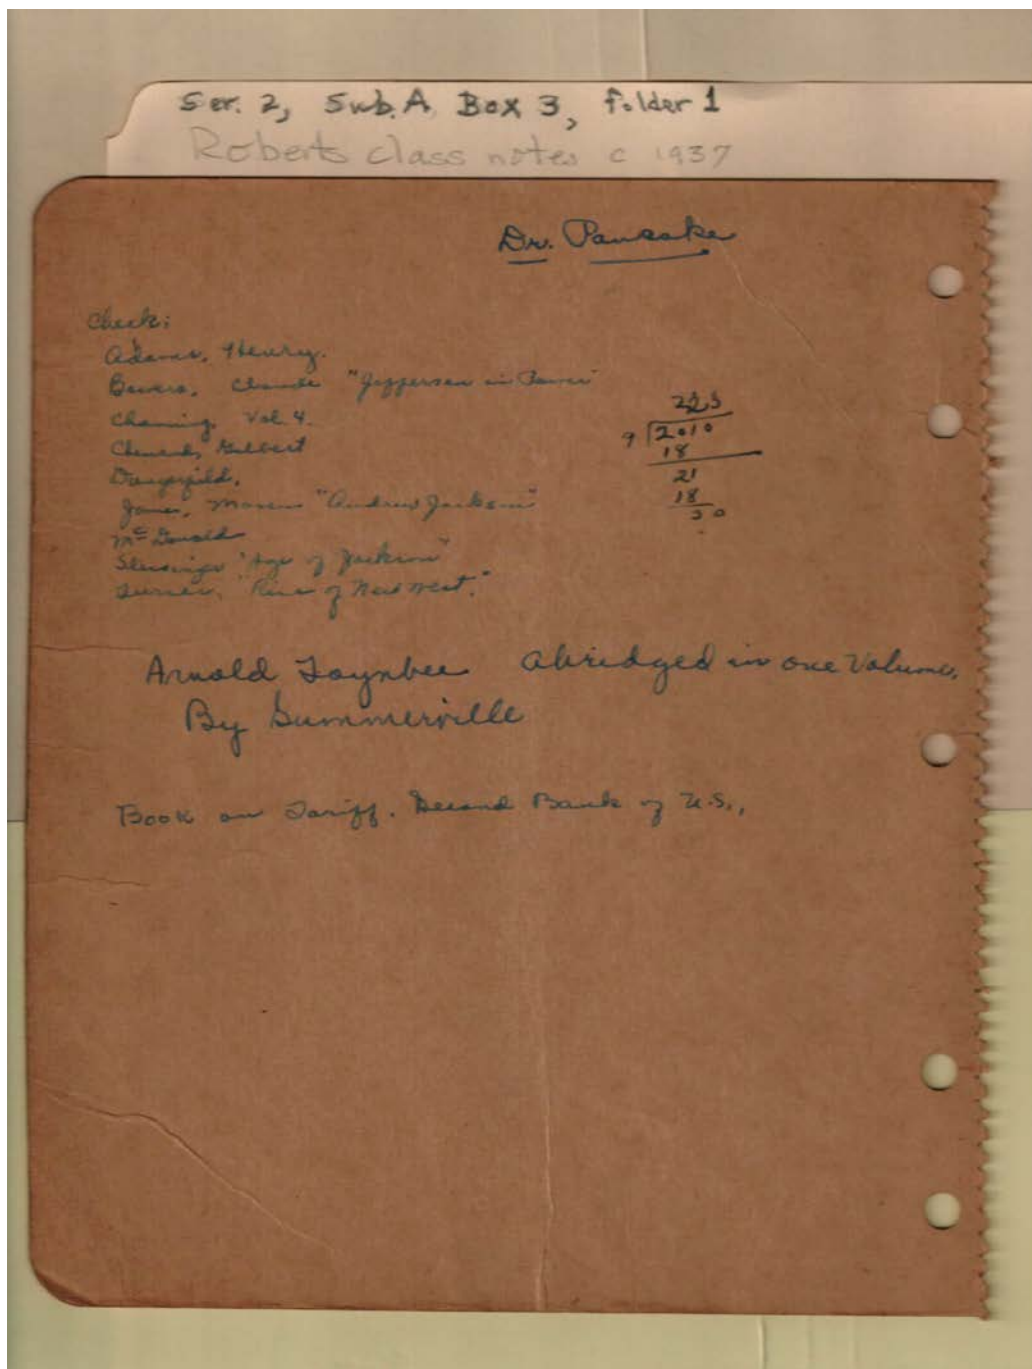 Ser. 2, Sub. A, Box 3, Folder 1
Roberts class notes c 1937
Dr. Pancake
Check:
Adams, Henry.
Bowers, Claude "Jefferson in Power"
Channing, Vol. 4.
Chinard, Gilbert
Dangerfield,
James, Marquis "Andrew Jackson"
McDonald
Slessinger "Age of Jackson"
Turner, "Rise of New West."
223
9 2010
18
21
18
30
Arnold Toynbee Abridged in one Volume,
By Summerville
Book on Tariff. Second Bank of U.S.,